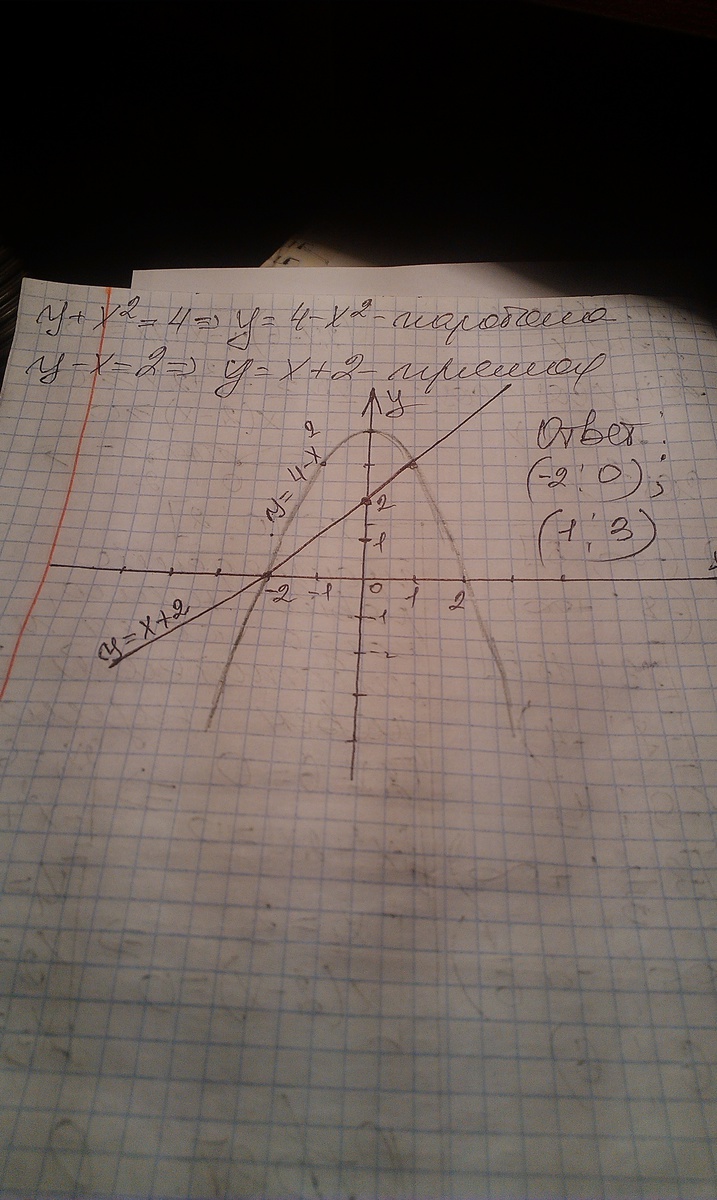 y+x²=4⇒y=4-x²-парабола
y-x=2⇒ y=x+2-прямая
y
Ответ:
(-2;0);
(1;3)
y=4-x²
2
1
-2 -1 0 1 2
-1
-2
y=x+2